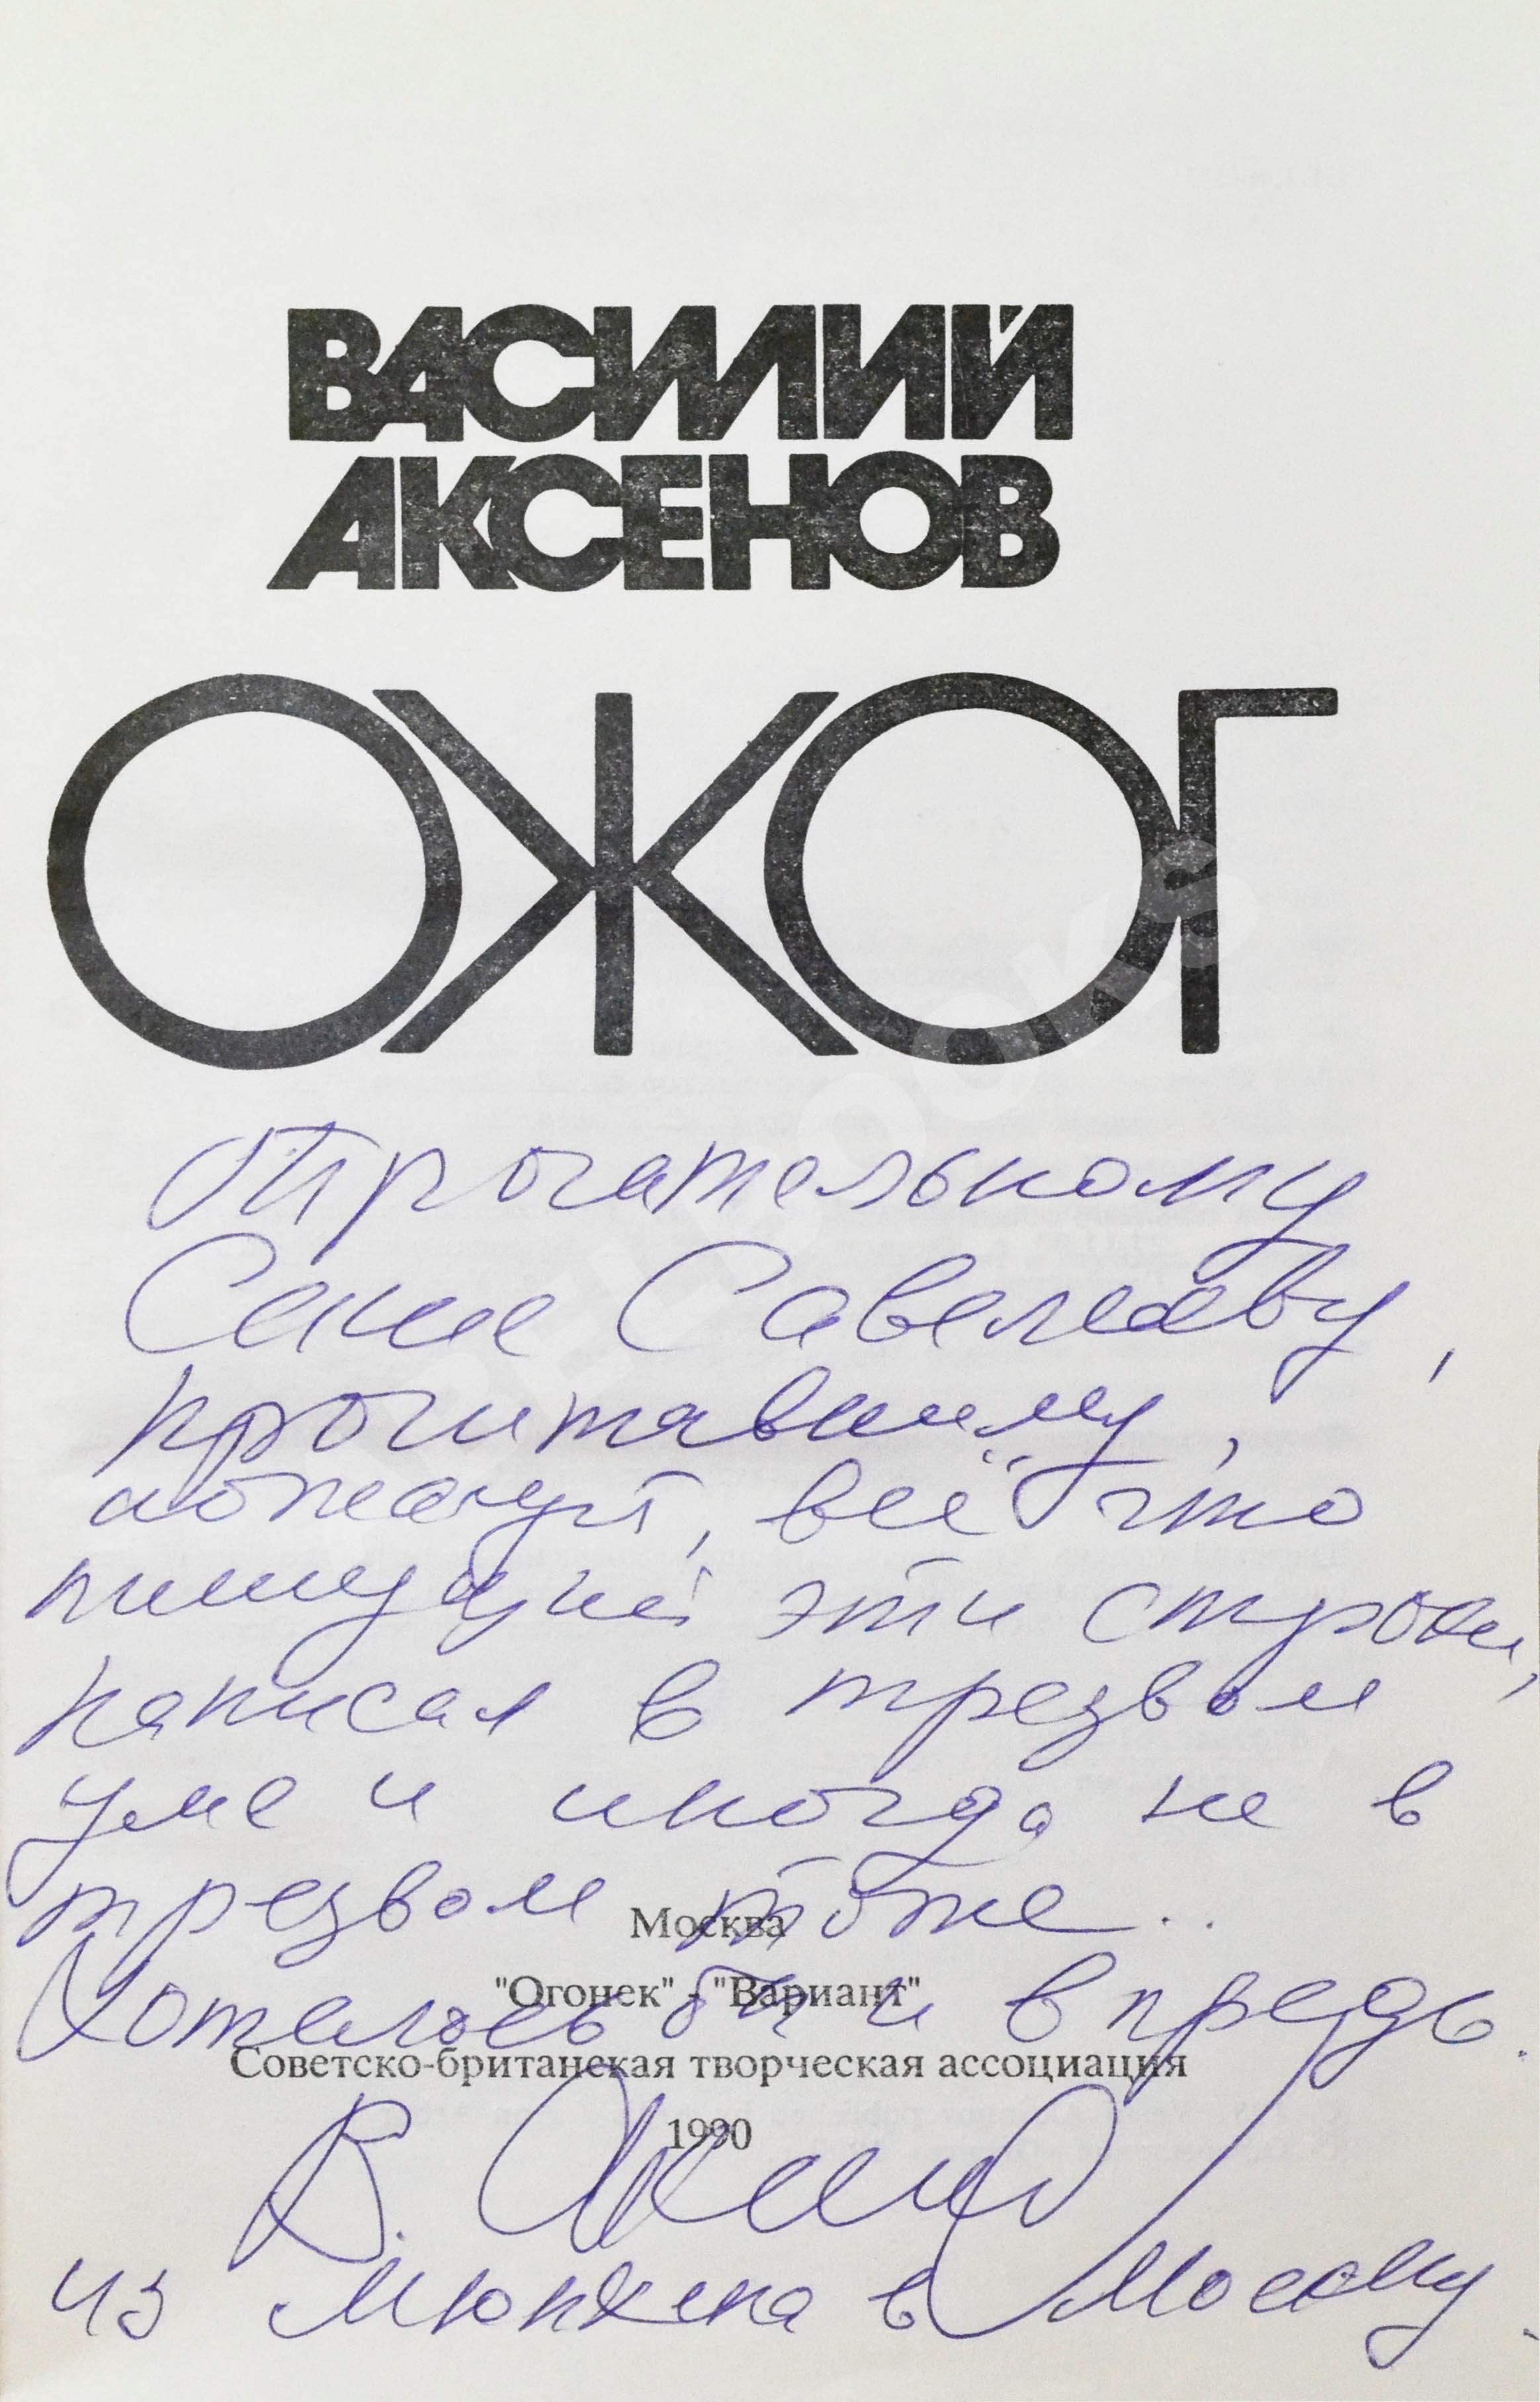 ВАСИЛИЙ
АКСЕНОВ
ОЖОГ
Трогательному
Сене Савельеву,
прочитавшему,
пожалуй, всё что
пишущий эти строки,
написал в трезвом
уме и иногда не в
трезвом тоже..
Москва
Хотелось бы и впредь.
"Огонек" - "Вариант"
Советско-британская творческая ассоциация
1990
В. Аксенов
из Мюнхена в Москву.